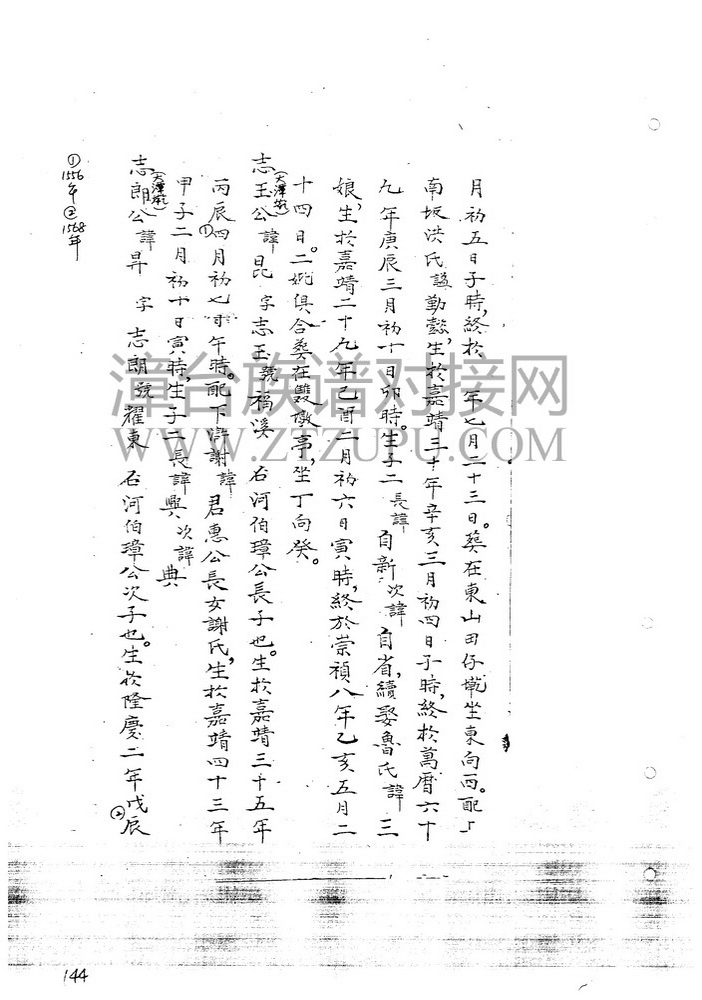 月初五日子時,終於 年七月二十三日。葬在東山田仔墘坐東向西。配
南坂洪氏諡勤懿,生於嘉靖三十年辛亥三月初四日子時,終於萬曆六十
九年庚辰三月初十日卯時。生子二長諱自新次諱自省,續娶魯氏諱三
娘,生於嘉靖二十九年己酉二月初六日寅時,終於崇禎八年乙亥五月二
十四日。二妣俱合葬在雙墩亭,坐丁向癸。
志玉公諱昆字志玉號福溪石河伯璋公長子也。生於嘉靖三十五年
丙辰①四月初七日午時。配下滸謝諱君惠公長女謝氏,生於嘉靖四十三年
甲子二月初十日寅時,生子二長諱興次諱典
志朗公諱昇字志朗號耀東石河伯璋公次子也。生於隆慶二年戊辰②
①1556年②1568年
144
漳台族谱对接网
WWW.ZTZUPU.COM